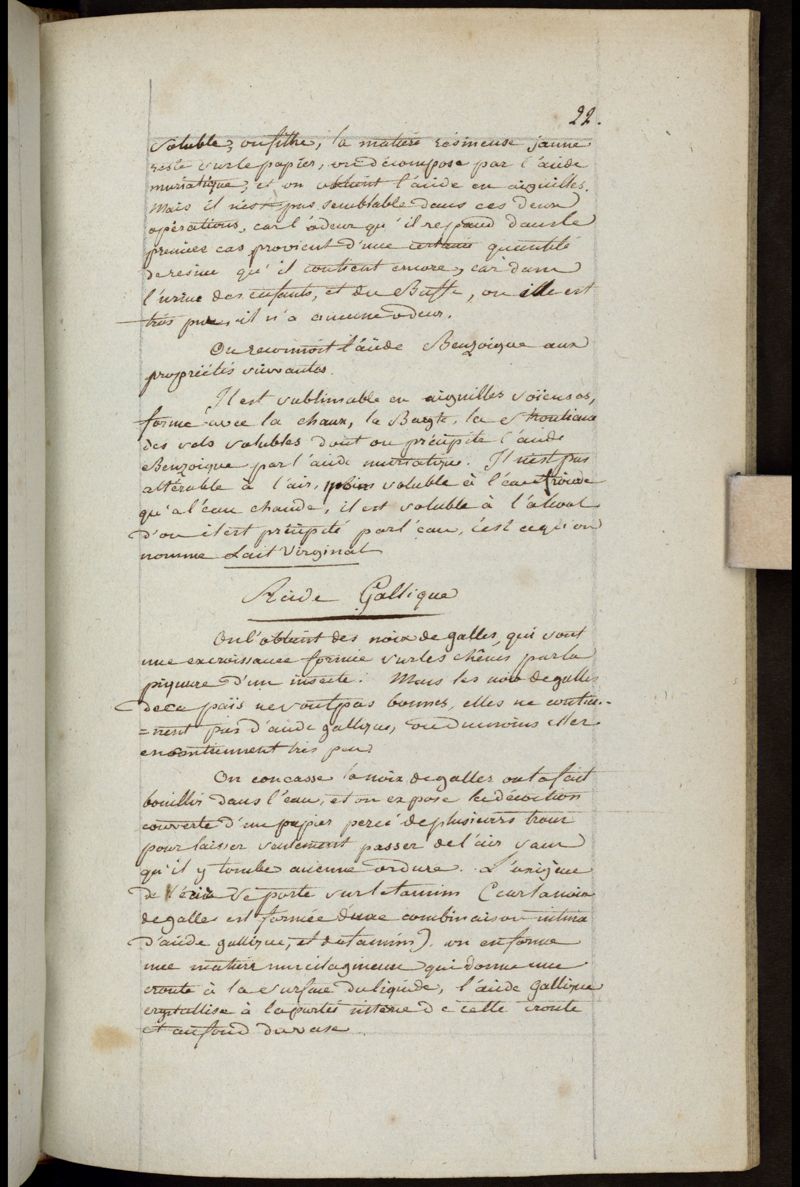 22.
soluble, on filtre, la matière résineuse jaune
reste sur le papier, on décompose par l'acide
muriatique, et on obtient l'acide en aiguilles.
Mais il n'est pas semblable dans ces deux
opérations, car l'odeur qu'il repand dans le
premier cas provient d'une certaine quantité
de resine qu'il contient encore, car dans
l'urine des enfants, et du Buffle, ou elle est
très pure, il n'a aucune odeur.
On reconnoit l'acide Benzoique aux
propriétés suivantes.
Il est sublimable en aiguilles soïeuses,
forme avec la chaux, la Baryte, la Strontiane
des sels solubles dont on précipite l'acide
Benzoique par l'acide muriatique. Il n'est pas
altérable à l'air, moins soluble à l'eau froide
qu'a l'eau chaude, il est soluble à l'alcool
d'ou il est précipité par l'eau, c'est ce qu'on
nomme Lait Virginal
Acide Gallique
On l'obtient des noix de galles, qui sont
une excroissance formée sur les chênes par la
piquure d'un insecte. Mais les noix de galles
de ce païs ne sont pas bonnes, elles ne contien-
=nent pas d'acide gallique, ou du moins elles
en contiennent très peu
On concasse la noix de galles on la fait
bouillir dans l'eau, et on expose la décoction
couverte d'un papier percé de plusieurs trous
pour laisser seulement passer de l'air sans
qu'il y tombe aucune ordure. L'oxigène
de l'air se porte sur le tannin (car la noix
de galle est formée d'une combinaison intime
d'acide gallique, et de tannin) on en forme
une matière mucilagineuse qui donne une
croute à la surface du liquide, l'acide gallique
crystallise à la partie interne de cette croute
et au fond du vase.